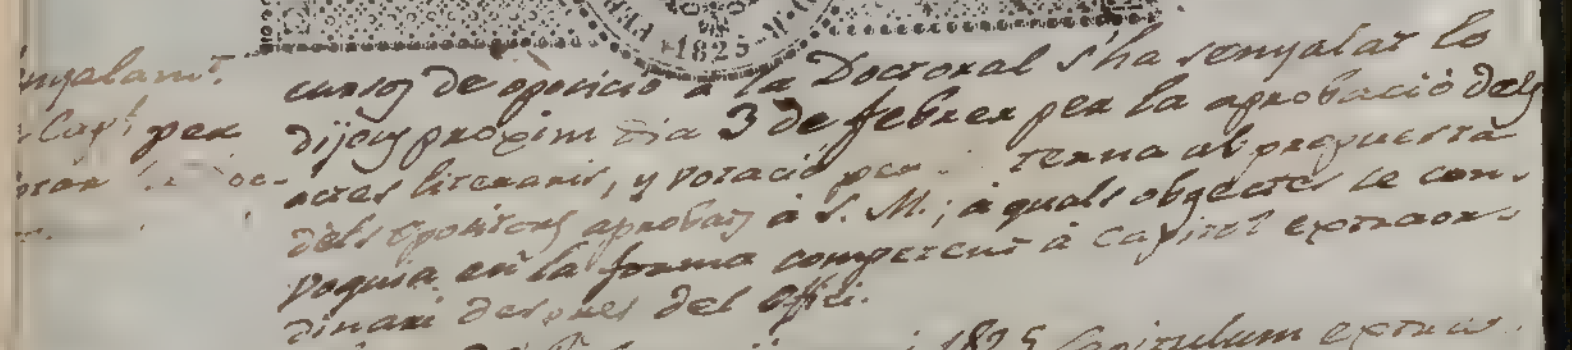 1825
cursos de oposicio a la Doctoral s'ha senyalat lo
dijous proxim dia 3 de febrer per la aprobació dels
actes literaris, y votació per terna ab propuesta
dels opositors aprobats á S. M.; á quals objectes se con-
voquia en la forma competent á Capitol extraor-
dinari despres del Ofici.
1825 Capitulum extra
per